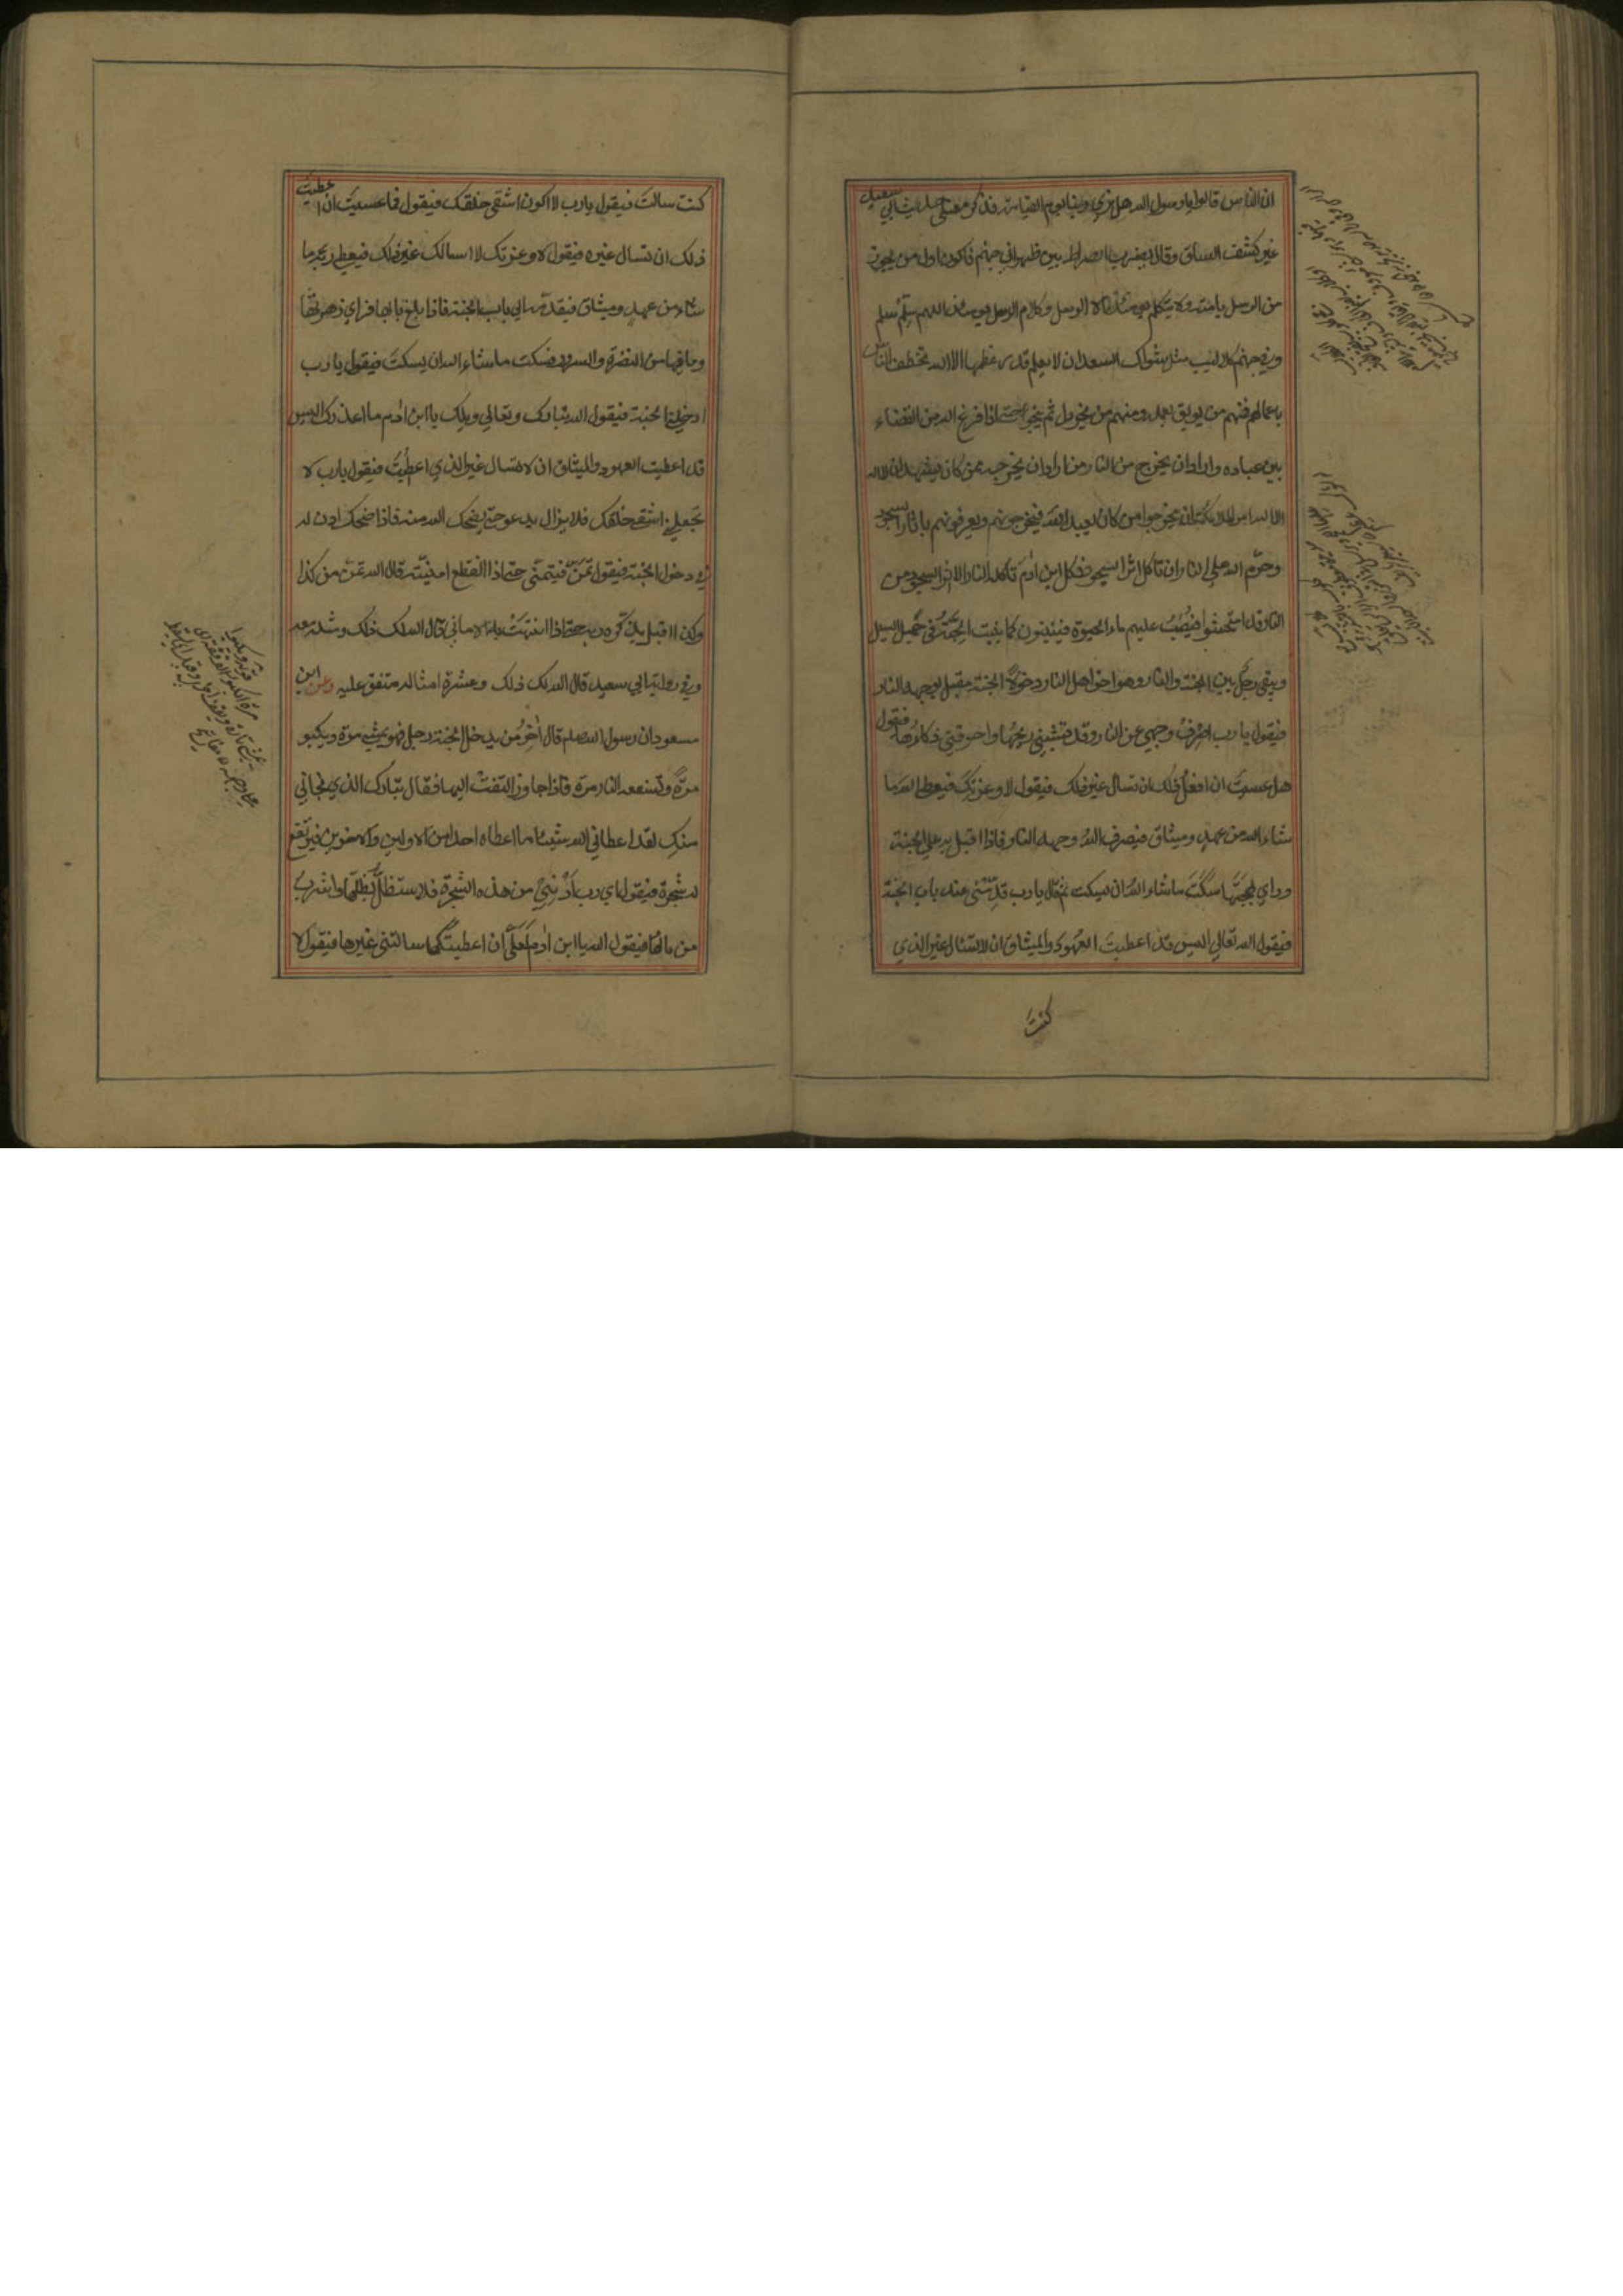 ان الناس قالوا يا رسول الله هل نري ربنا يوم القيامة فذكر معني حديث ابي سعيد
غير كشف الساق وقال يضرب الصراط بين ظهراني جهنم فاكون اول من يجوز
من الرسل بامته ولا يتكلم يومئذ الا الرسل وكلام الرسل يومئذ اللهم سلم سلم
وفي جهنم كلاليب مثل شوك السعدان لا يعلم قدر عظمها الا الله تخطف الناس
باعمالهم فمنهم من يوبق بعمله ومنهم من يخردل ثم ينجو حتي اذا فرغ الله من القضاء
بين عباده واراد ان يخرج من النار من اراد ان يخرجه ممن كان يشهد ان لا اله
الا الله امر الملائكة ان يخرجوا من كان يعبد الله فيخرجونهم ويعرفونهم باثار السجود
وحرّم الله علي النار ان تاكل اثر السجود فكل ابن اٰدم تاكله النار الا اثر السجود من
النار قد امتحشوا فيُصَبُّ عليهم ماء الحيوة فينبتون كما ينبت الحِبَّةُ في حَمِيل السيل
ويبقي رجل بين الجنة والنار وهو اخر اهل النار دخولاً الجنة مقبل بوجهه النار
فيقول يا رب اصرفْ وجهي عن النار وقد قشبني ريحُها واحرقني ذكاؤها فيقول
هل عسيتَ ان افعل ذلك ان تسال غير ذلك فيقول لا وعزتِك فيعطي الله ما
شاء الله من عهد وميثاق فيصرف اللهُ وجهه النار فاذا اقبل به علي الجنة
وراي بَهجَتَها سكَتَ ما شاء الله ان يسكت ثم قال يا رب قدِّمْني عند باب الجنة
فيقول الله تعالي اليس قد اعطيتَ العُهودَ والميثاقَ ان لا تسئال غير الذي
كنتَ
كنت سالتَ فيقول يا رب لا اكون اشقي خلقك فيقول فما عسيتَ ان اعطيتُ
ذلك ان تسال غيره فيقول لا وعزتك لا اسالك غير ذلك فيعطي ربه ما
شاء من عهد وميثاق فيقدّمه الي باب الجنة فاذا بلغ بابها فراي زهرتها
وما فيها من النضرة والسرور فسكت ما شاء الله ان يسكتَ فيقول يا رب
ادخلني الجنة فيقول الله تبارك وتعالي ويلك يا ابن اٰدم ما اعذرك اليس
قد اعطيت العهود والميثاق ان لا تسال غير الذي اعطيتَ فيقول يا رب لا
تجعلني اشقي خلقك فلا يزال يدعو حتي يضحك الله منه فاذا ضحك اذن له
في دخول الجنة فيقول تمنّ فيتمنّي حتي اذا انقطع امنيّته قال الله تمنّ من كذا
وكذا اقبل يذكّره ربه حتي اذا انتهتْ به الاماني قال الله لك ذلك ومثله معه
وفي رواية ابي سعيد قال الله لك ذلك وعشرة امثاله متفق عليه وعن ابن
مسعود ان رسول الله صلعم قال اٰخِرُ من يدخل الجنة رجل فهو يمشي مرة ويكبو
مرةً وتسفعه النار مرة فاذا جاوزها التفتَ اليها فقال تبارك الذي نجاني
منكِ لقد اعطاني الله شيئا ما اعطاه احدا من الاولين والاخرين فتُرفع
له شجرة فيقول اي رب اَدْنِنِيْ من هذه الشجرة فلاستظلَّ بظلّها واشربُ
من مائها فيقول الله يا ابن اٰدم لَعَلّي اِن اعطيتُكَها سالتني غيرها فيقول لا